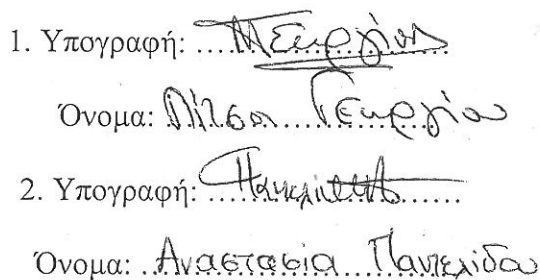 1. Υπογραφή:
Όνομα: Πίτσα Γεωργίου
2. Υπογραφή:
Όνομα: Αναστασία Παντελίδου